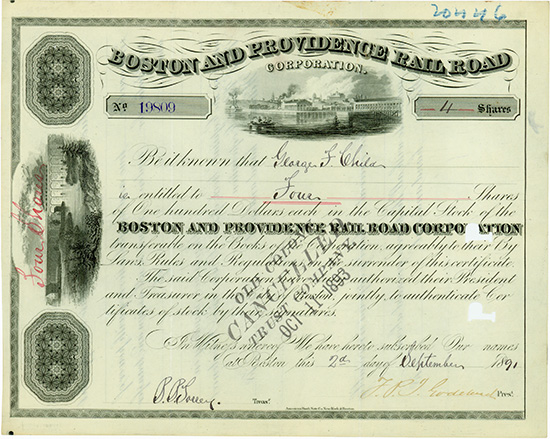 20446
BOSTON AND PROVIDENCE RAIL ROAD
CORPORATION.
No 19809
4 Shares
Be it known that George F. Childs
is entitled to Four Shares
of One hundred Dollars each in the Capital Stock of the
BOSTON AND PROVIDENCE RAIL ROAD CORPORATION
transferable on the Books of Corporation, agreeably to their By
Laws Rules and Regulations surrender of this certificate.
The said Corporation authorized their President
and Treasurer in the jointly, to authenticate Cer
tificates of stock by their signatures.
In Witness whereof We have hereto subscribed Our names
at Boston this 2d day of September 1891
Treasr.
Prest.
Four Shares
OLD COLONY
CANCELLED
TRUST COMPANY
OCT 11 1893